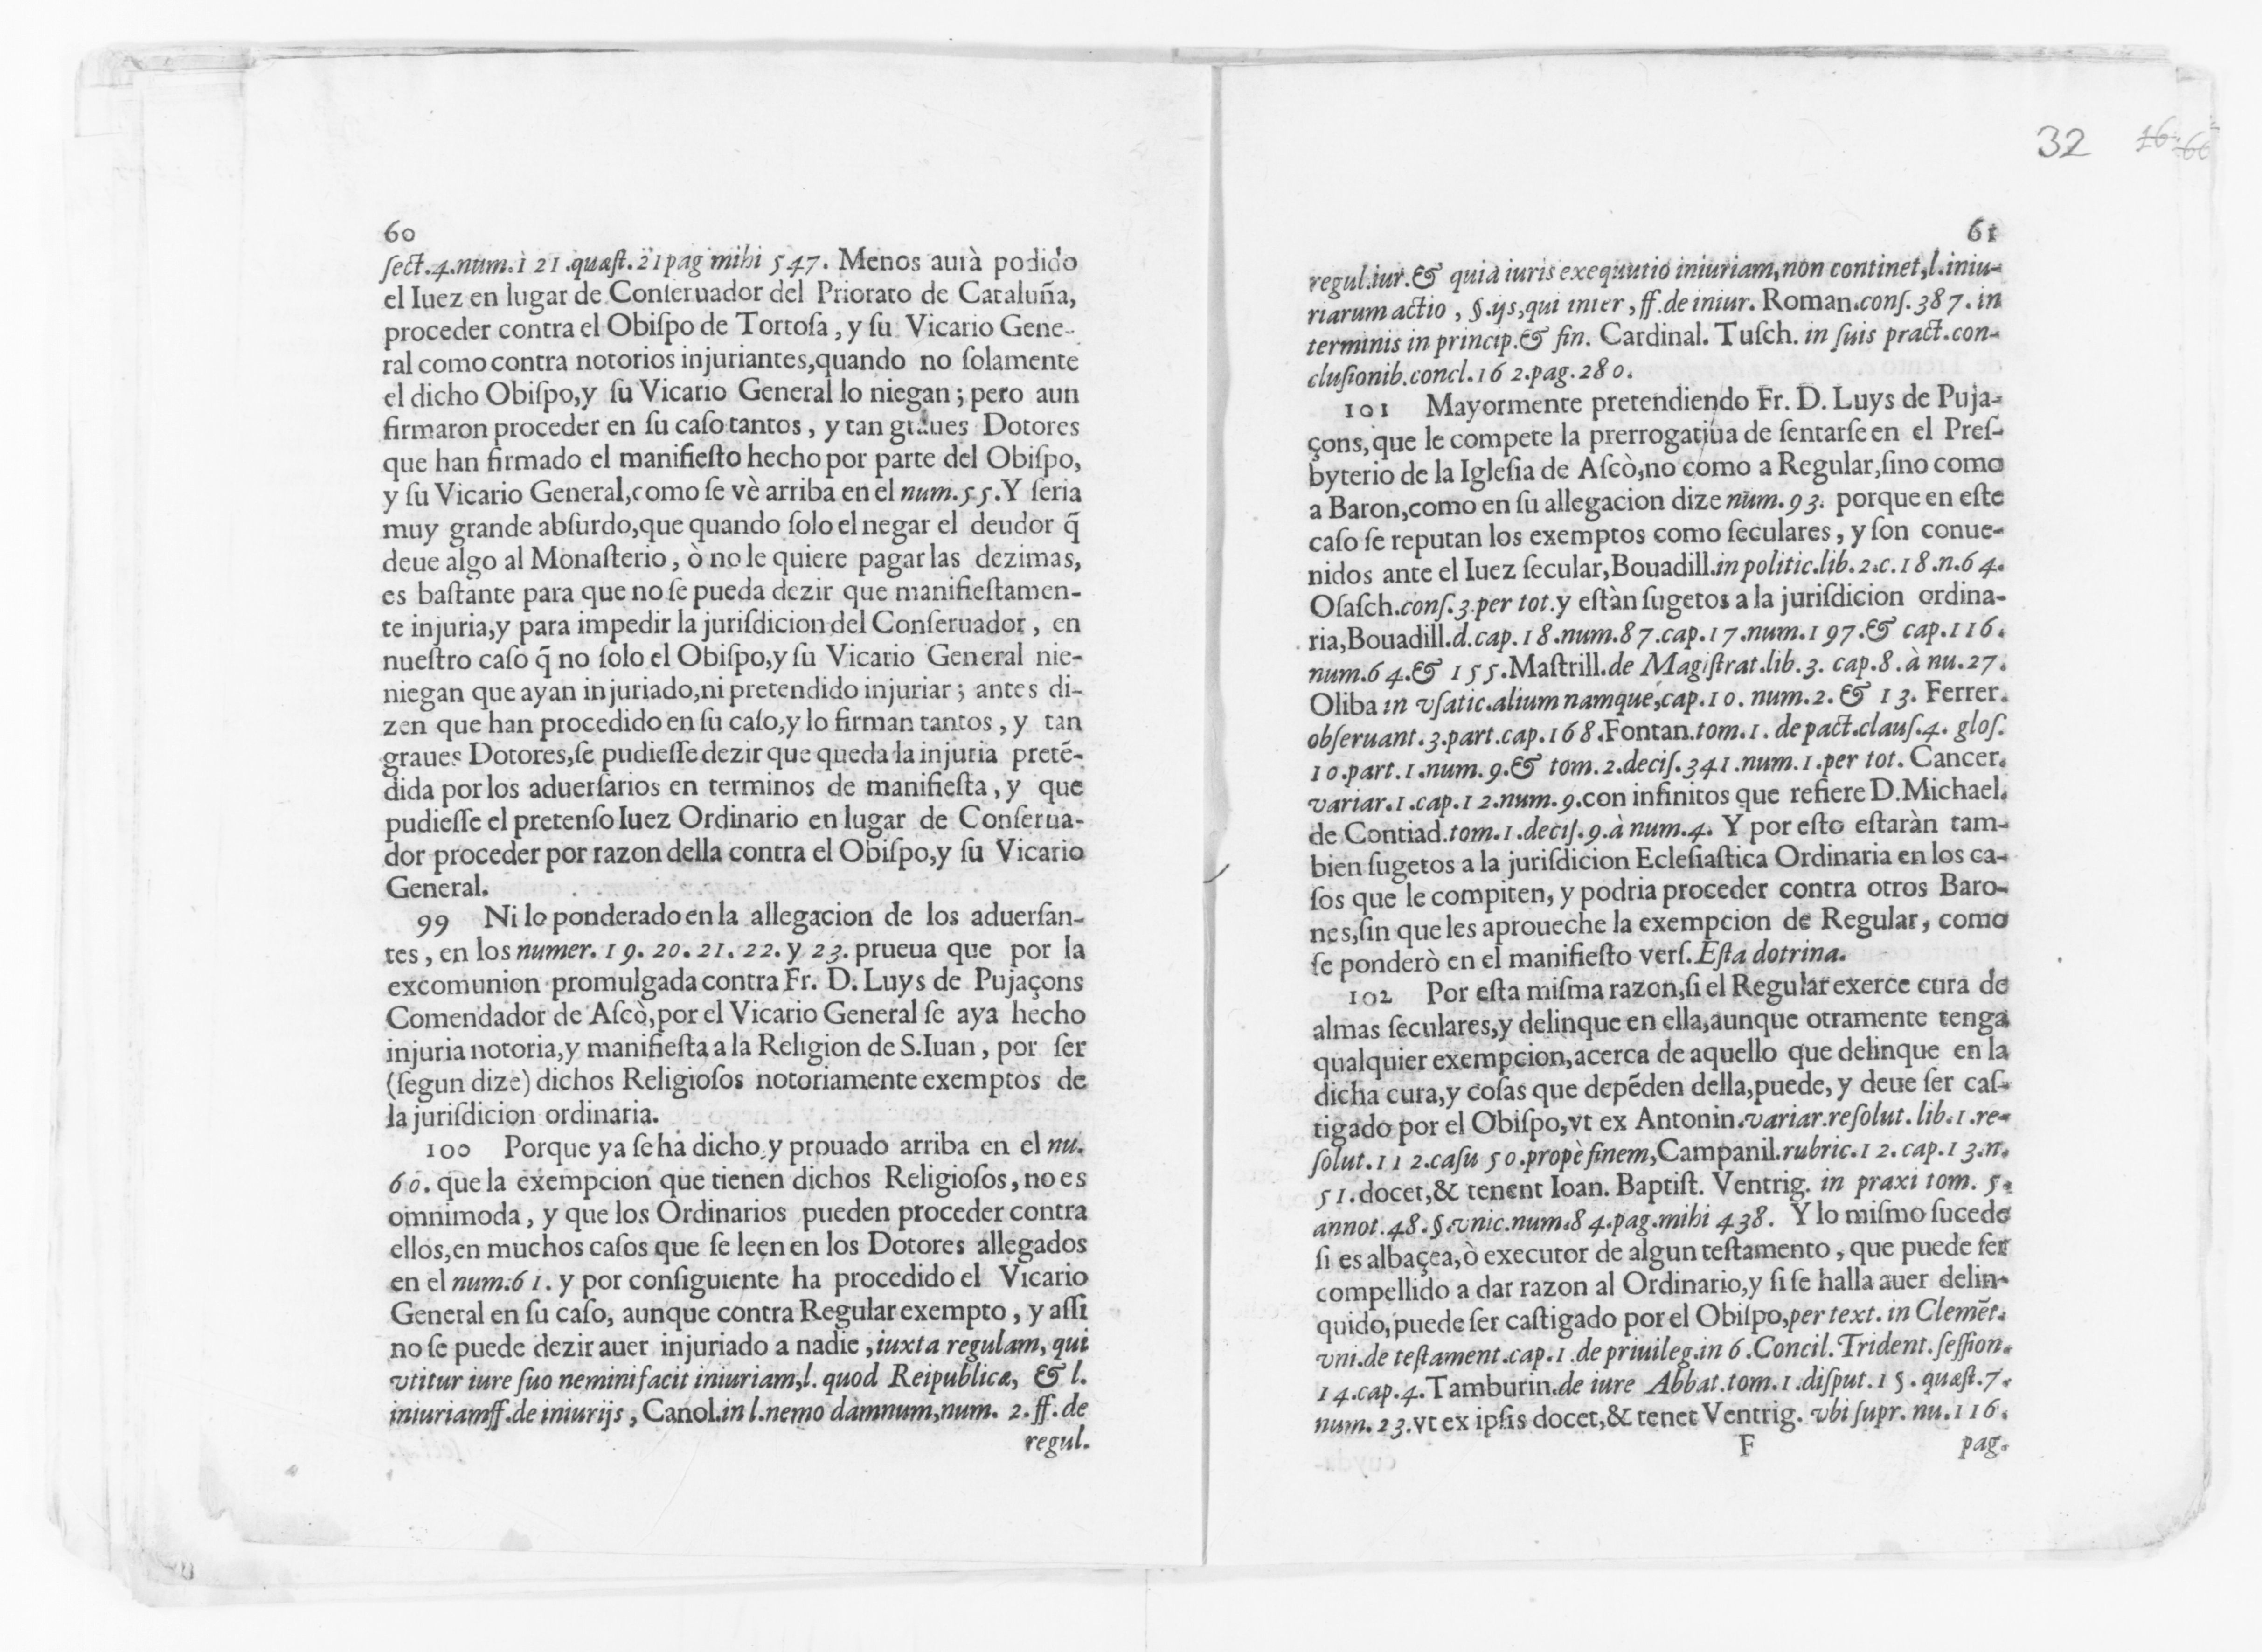 60
ſect.4.num.121.quæſt.21 pag mihi 547. Menos aurà podido
el Iuez en lugar de Conſeruador del Priorato de Cataluña,
proceder contra el Obiſpo de Tortoſa, y ſu Vicario Gene-
ral como contra notorios injuriantes,quando no ſolamente
el dicho Obiſpo,y ſu Vicario General lo niegan; pero aun
firmaron proceder en ſu caſo tantos, y tan graues Dotores
que han firmado el manifieſto hecho por parte del Obiſpo,
y ſu Vicario General,como ſe vè arriba en el num.55.Y ſeria
muy grande abſurdo,que quando ſolo el negar el deudor q̃
deue algo al Monaſterio, ò no le quiere pagar las dezimas,
es baſtante para que no ſe pueda dezir que manifieſtamen-
te injuria,y para impedir la juriſdicion del Conſeruador, en
nueſtro caſo q̃ no ſolo el Obiſpo,y ſu Vicario General nie-
niegan que ayan injuriado,ni pretendido injuriar; antes di-
zen que han procedido en ſu caſo,y lo firman tantos, y tan
graues Dotores,ſe pudieſſe dezir que queda la injuria pretẽ-
dida por los aduerſarios en terminos de manifieſta, y que
pudieſſe el pretenſo Iuez Ordinario en lugar de Conſerua-
dor proceder por razon della contra el Obiſpo,y ſu Vicario
General.
99 Ni lo ponderado en la allegacion de los aduerſan-
tes, en los numer. 19. 20. 21. 22. y 23. prueua que por la
excomunion promulgada contra Fr. D. Luys de Pujaçons
Comendador de Aſcò,por el Vicario General ſe aya hecho
injuria notoria,y manifieſta a la Religion de S.Iuan, por ſer
(ſegun dize) dichos Religioſos notoriamente exemptos de
la juriſdicion ordinaria.
100 Porque ya ſe ha dicho, y prouado arriba en el nu.
60. que la exempcion que tienen dichos Religioſos, no es
omnimoda, y que los Ordinarios pueden proceder contra
ellos,en muchos caſos que ſe leen en los Dotores allegados
en el num.61. y por conſiguiente ha procedido el Vicario
General en ſu caſo, aunque contra Regular exempto, y aſſi
no ſe puede dezir auer injuriado a nadie,iuxta regulam, qui
vtitur iure ſuo nemini facit iniuriam,l. quod Reipublicæ, & l.
iniuriam ff.de iniurijs, Canol.in l.nemo damnum,num. 2. ff. de
regul.
32 16. 66
61
regul.iur.& quia iuris exequutio iniuriam,non continet,l.iniu-
riarum actio, §.ijs,qui inter, ff.de iniur. Roman.conſ.387. in
terminis in princip.& fin. Cardinal. Tuſch. in ſuis pract.con-
cluſionib.concl.162.pag.280.
101 Mayormente pretendiendo Fr. D. Luys de Puja-
çons, que le compete la prerrogatiua de ſentarſe en el Preſ-
byterio de la Igleſia de Aſcò,no como a Regular,ſino como
a Baron,como en ſu allegacion dize num.93. porque en eſte
caſo ſe reputan los exemptos como ſeculares, y ſon conue-
nidos ante el Iuez ſecular,Bouadill.in politic.lib.2.c.18.n.64.
Oſaſch.conſ.3.per tot.y eſtàn ſugetos a la juriſdicion ordina-
ria,Bouadill.d.cap.18.num.87.cap.17.num.197.& cap.116.
num.64.& 155.Maſtrill.de Magiſtrat.lib.3. cap.8.à nu.27.
Oliba in vſatic.alium namque,cap.10. num.2. & 13. Ferrer.
obſeruant.3.part.cap.168.Fontan.tom.1. de pact.clauſ.4. gloſ.
10.part.1.num.9.& tom.2.deciſ.341.num.1.per tot. Cancer.
variar.1.cap.12.num.9.con infinitos que refiere D.Michael.
de Contiad.tom.1.deciſ.9.à num.4. Y por eſto eſtaràn tam-
bien ſugetos a la juriſdicion Ecleſiaſtica Ordinaria en los ca-
ſos que le compiten, y podria proceder contra otros Baro-
nes,ſin que les aproueche la exempcion de Regular, como
ſe ponderò en el manifieſto verſ.Eſta dotrina.
102 Por eſta miſma razon,ſi el Regular exerce cura de
almas ſeculares,y delinque en ella,aunque otramente tenga
qualquier exempcion,acerca de aquello que delinque en la
dicha cura,y coſas que depẽden della,puede, y deue ſer caſ-
tigado por el Obiſpo,vt ex Antonin.variar.reſolut.lib.1.re-
ſolut.112.caſu 50.propè finem,Campanil.rubric.12.cap.13.n.
51.docet,& tenent Ioan. Baptiſt. Ventrig. in praxi tom. 5.
annot.48.§.vnic.num.84.pag.mihi 438. Y lo miſmo ſucede
ſi es albaçea,ò executor de algun teſtamento, que puede ſer
compellido a dar razon al Ordinario,y ſi ſe halla auer delin-
quido,puede ſer caſtigado por el Obiſpo,per text. in Clemẽt.
vni.de teſtament.cap.1.de priuileg.in 6.Concil.Trident.ſeſſion.
14.cap.4.Tamburin.de iure Abbat.tom.1.diſput.15.quæſt.7.
num.23.vt ex ipſis docet,& tenet Ventrig. vbi ſupr. nu.116.
F pag.